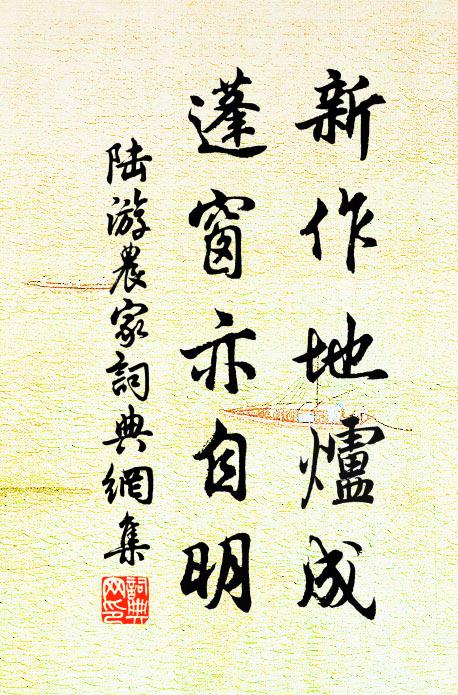 新作地爐成
蓬窗亦自明
陆游農家詞典網集
詞典网印